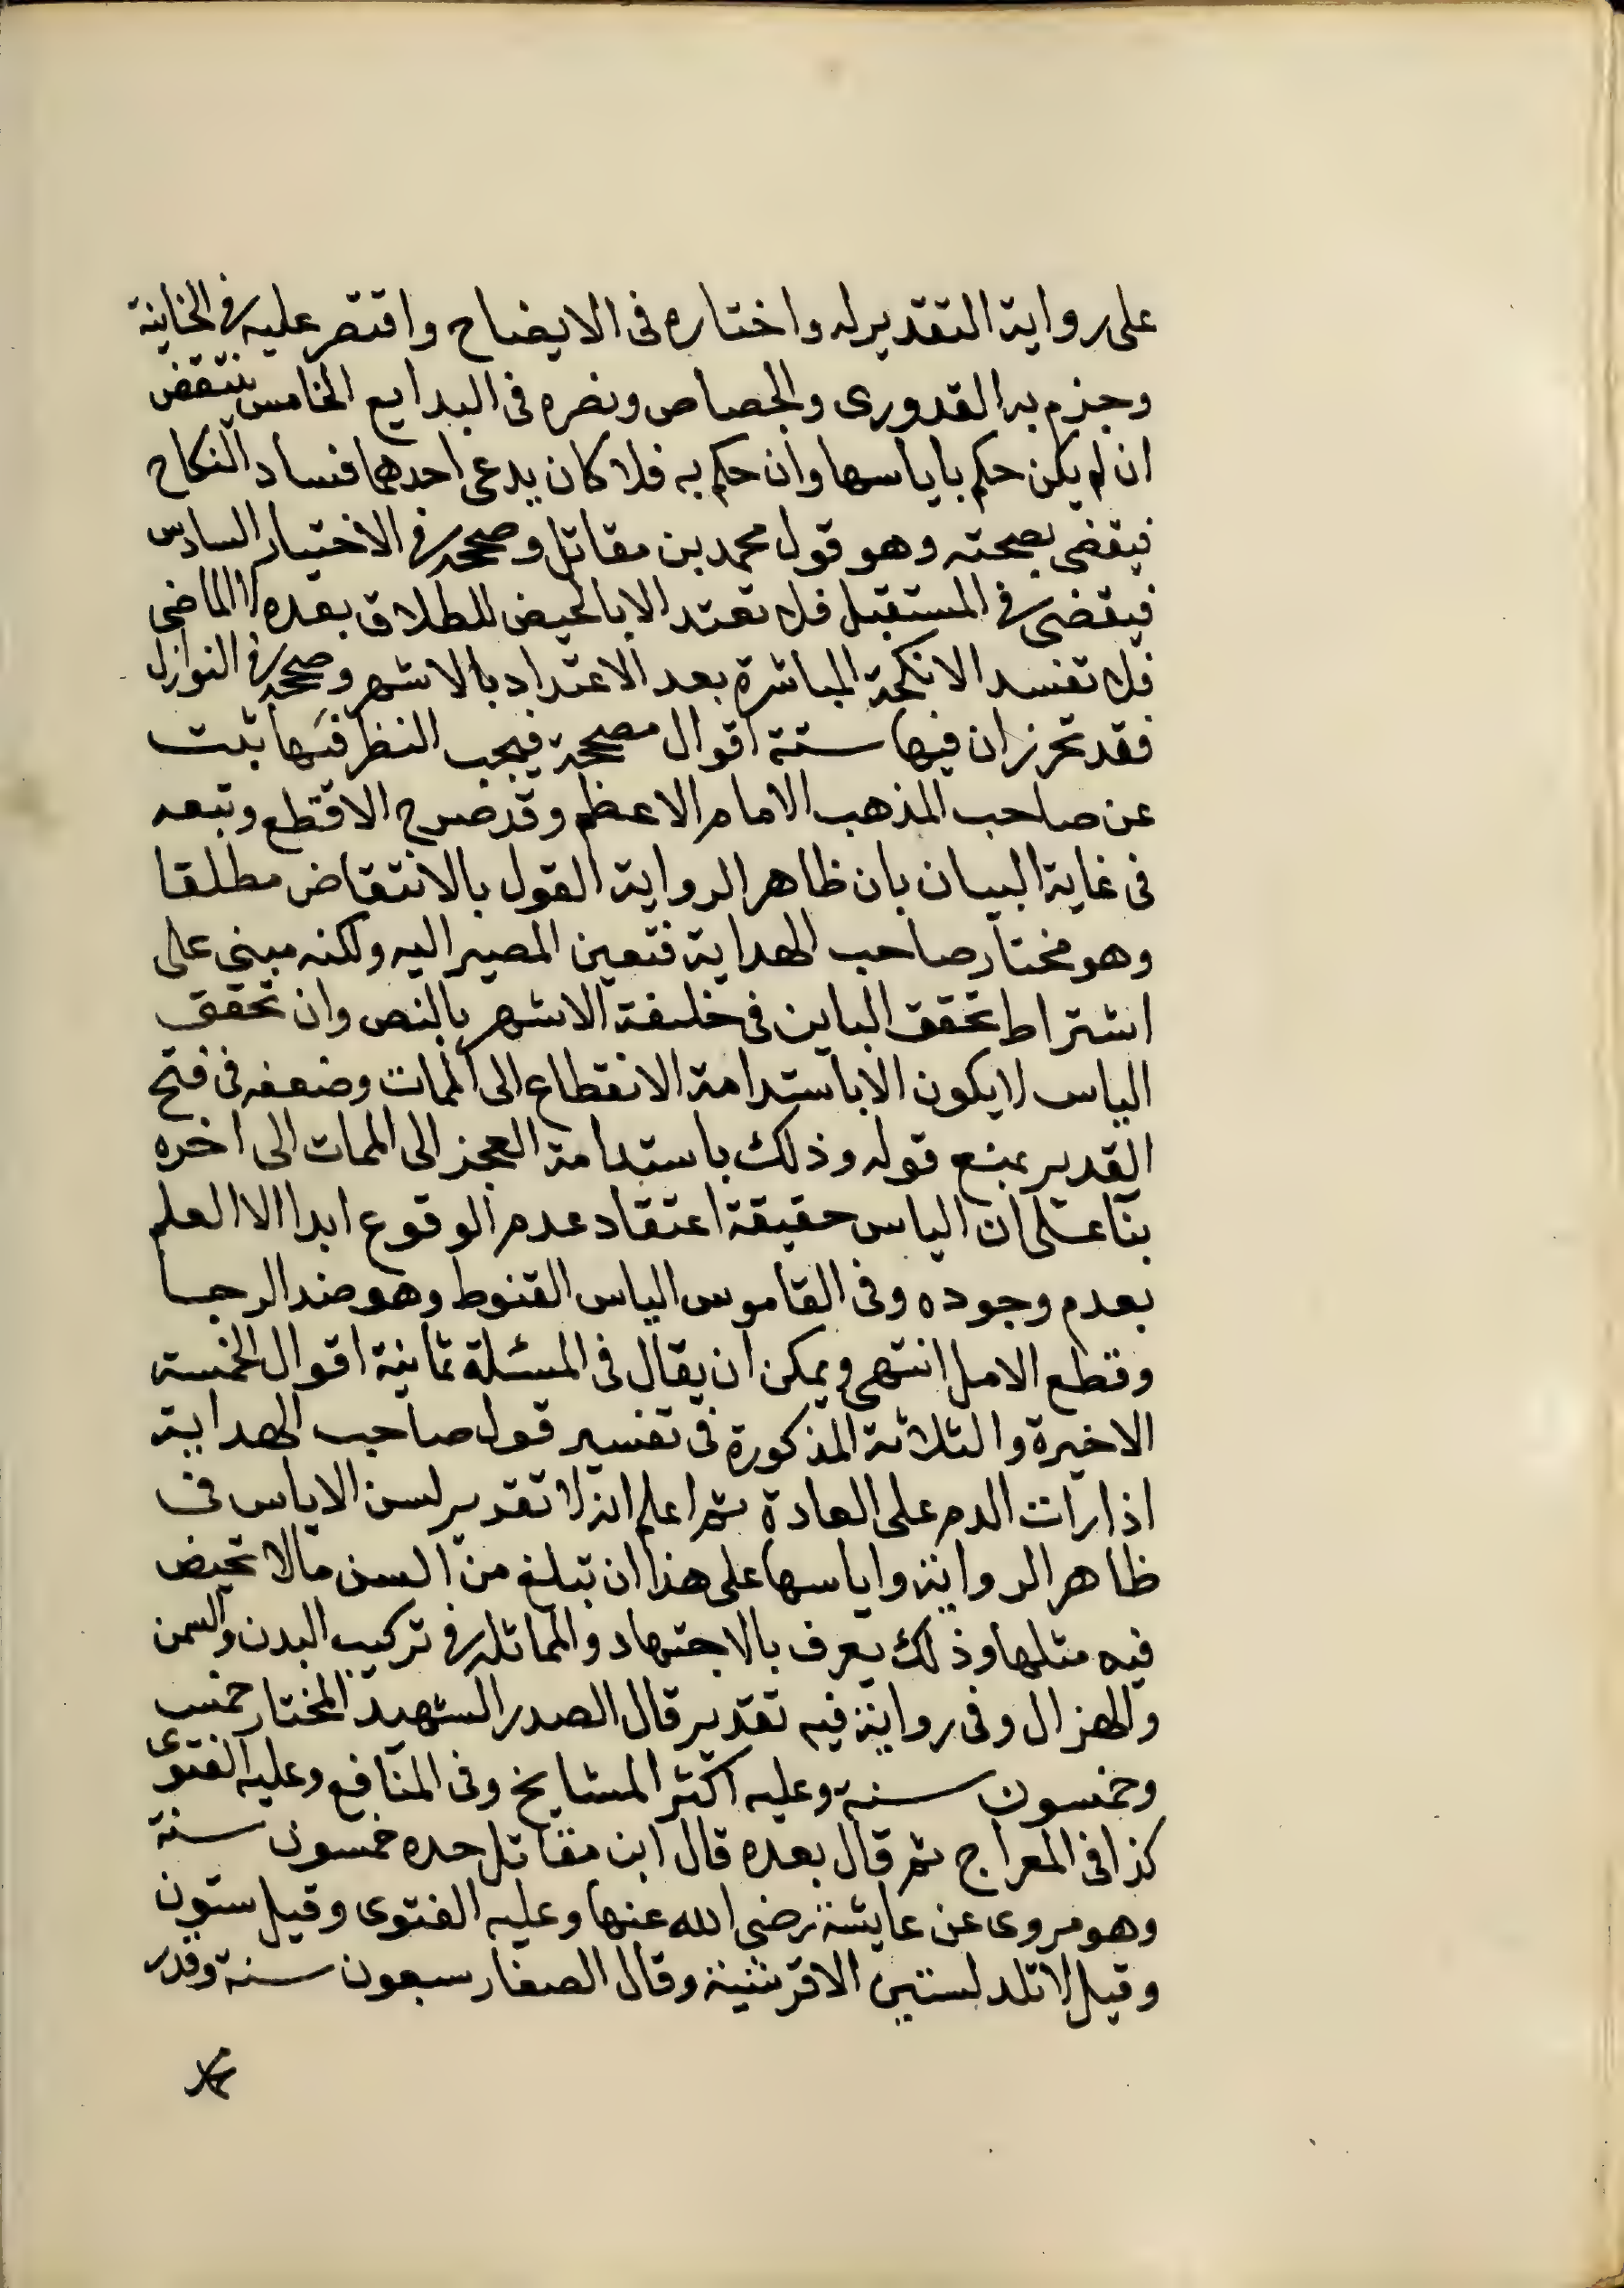 على رواية التقدير له واختاره فى الايضاح واقتصر عليه فى الخانية
وجزم به القدورى والجصاص ونصره فى البدايع الخامس ينتقض
ان لم يكن حكم باياسها وان حكم به فلا كان يدعى احدهما فساد النكاح
فيقضى بصحته وهو قول محمد بن مقاتل وصححه فى الاختيار السادس
فيقضى فى المستقبل فلا تعتد الا بالحيض للطلاق بعده لا الماضى
فلا تفسد الانكحة المباشرة بعد الاعتداد بالاشهر وصححه فى النوازل
فقد تحرر ان فيها ستة اقوال مصححة فيجب النظر فيها ثبت
عن صاحب المذهب الامام الاعظم وقد صرح الاقطع وتبعه
فى غاية البيان بان ظاهر الرواية القول بالانتقاض مطلقا
وهو مختار صاحب الهداية فتعين المصير اليه ولكنه مبنى على
اشتراط تحقق الياس فى خلفة الاشهر بالنص وان تحقق
الياس لا يكون الا باستدامة الانقطاع الى الممات وضعفه فى فتح
القدير بمنع قوله وذلك باستدامة العجز الى الممات الى اخره
بنا على ان الياس حقيقة اعتقاد عدم الوقوع ابدا الا العلم
بعدم وجوده وفى القاموس الياس القنوط وهو ضد الرجا
وقطع الامل انتهى ويمكن ان يقال فى المسئلة ثمانية اقوال الخمسة
الاخيرة والثلاثة المذكورة فى تفسير قول صاحب الهداية
اذا رات الدم على العادة ثم اعلم انه لا تقدير لسن الاياس فى
ظاهر الرواية واياسها على هذا ان تبلغ من السن مالا تحيض
فيه مثلها وذلك يعرف بالاجتهاد والمماثلة فى تركيب البدن والسمن
والهزال وفى رواية فيه تقدير قال الصدر الشهيد المختار خمس
وخمسون سنة وعليه اكثر المشايخ وفى المنافع وعليه الفتوى
كذا فى المعراج ثم قال بعده قال ابن مقاتل حده خمسون سنة
وهو مروى عن عايشة رضى الله عنها وعليه الفتوى وقيل ستون
وقيل لا تلد لستين الا قرشية وقال الصفار سبعون سنة وقدر